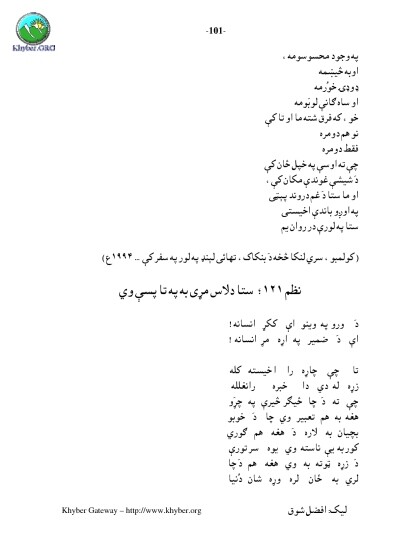 -101-
Khyber.ORG
په وجود محسوسومه ،
اوبه څيښمه
ډوډۍ خوُرمه
او ساه ګاني لوبَومه
خو ، که فرق شته ما او تا کې
نو هم دومره
فقط دومره
چې ته اوسې په خپل ځان کې
دَ شيشې غوندې مکان کې ،
او ما ستا دَ غم دروند پېټی
په اوږو باندې اخيستی
ستا په لورې در روان يم
(کولمبو ، سري لنکا څخه دَ بنکاک ، تهائی لېنډ په لور په سفر کې .. ۱۹۹۴ع)
نظم ۱۲۱ ؛ ستا دلاس مړی به په تا پسې وي
دَ ورو په وينو اې ککړ انسانه !
اې دَ ضمير په اړه مړ انسانه !
تا چې چاړه را اخيسته کله
زړه له دې دا خبره رانغلله
چې ته دَ چا ځيګر څيرې په چړو
هغه به هم تعبير وي چا دَ خوبو
بچيان به لاره دَ هغه هم ګوري
کور به يې ناسته وي يوه سرتورې
دَ زړه ټوټه به وي هغه هم دَچا
لري به ځان لره وړه شان دُنيا
Khyber Gateway – http://www.khyber.org
ليک: افضل شوق